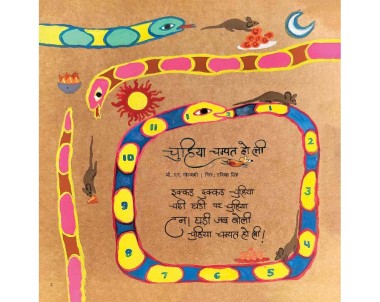 11
12
1
10
2
9
3
8
7
6
5
4
चुहिया चम्पत हो ली
इक्कड़ दुक्कड़ चुहिया
चढ़ी घड़ी पर चुहिया
टन! घड़ी जब बोली
चुहिया चम्पत हो ली!